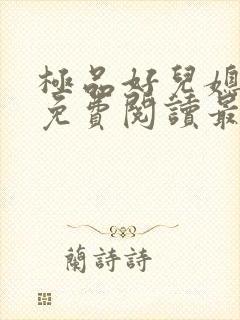 極品好兒媳
免費閱讀最
蘭詩詩